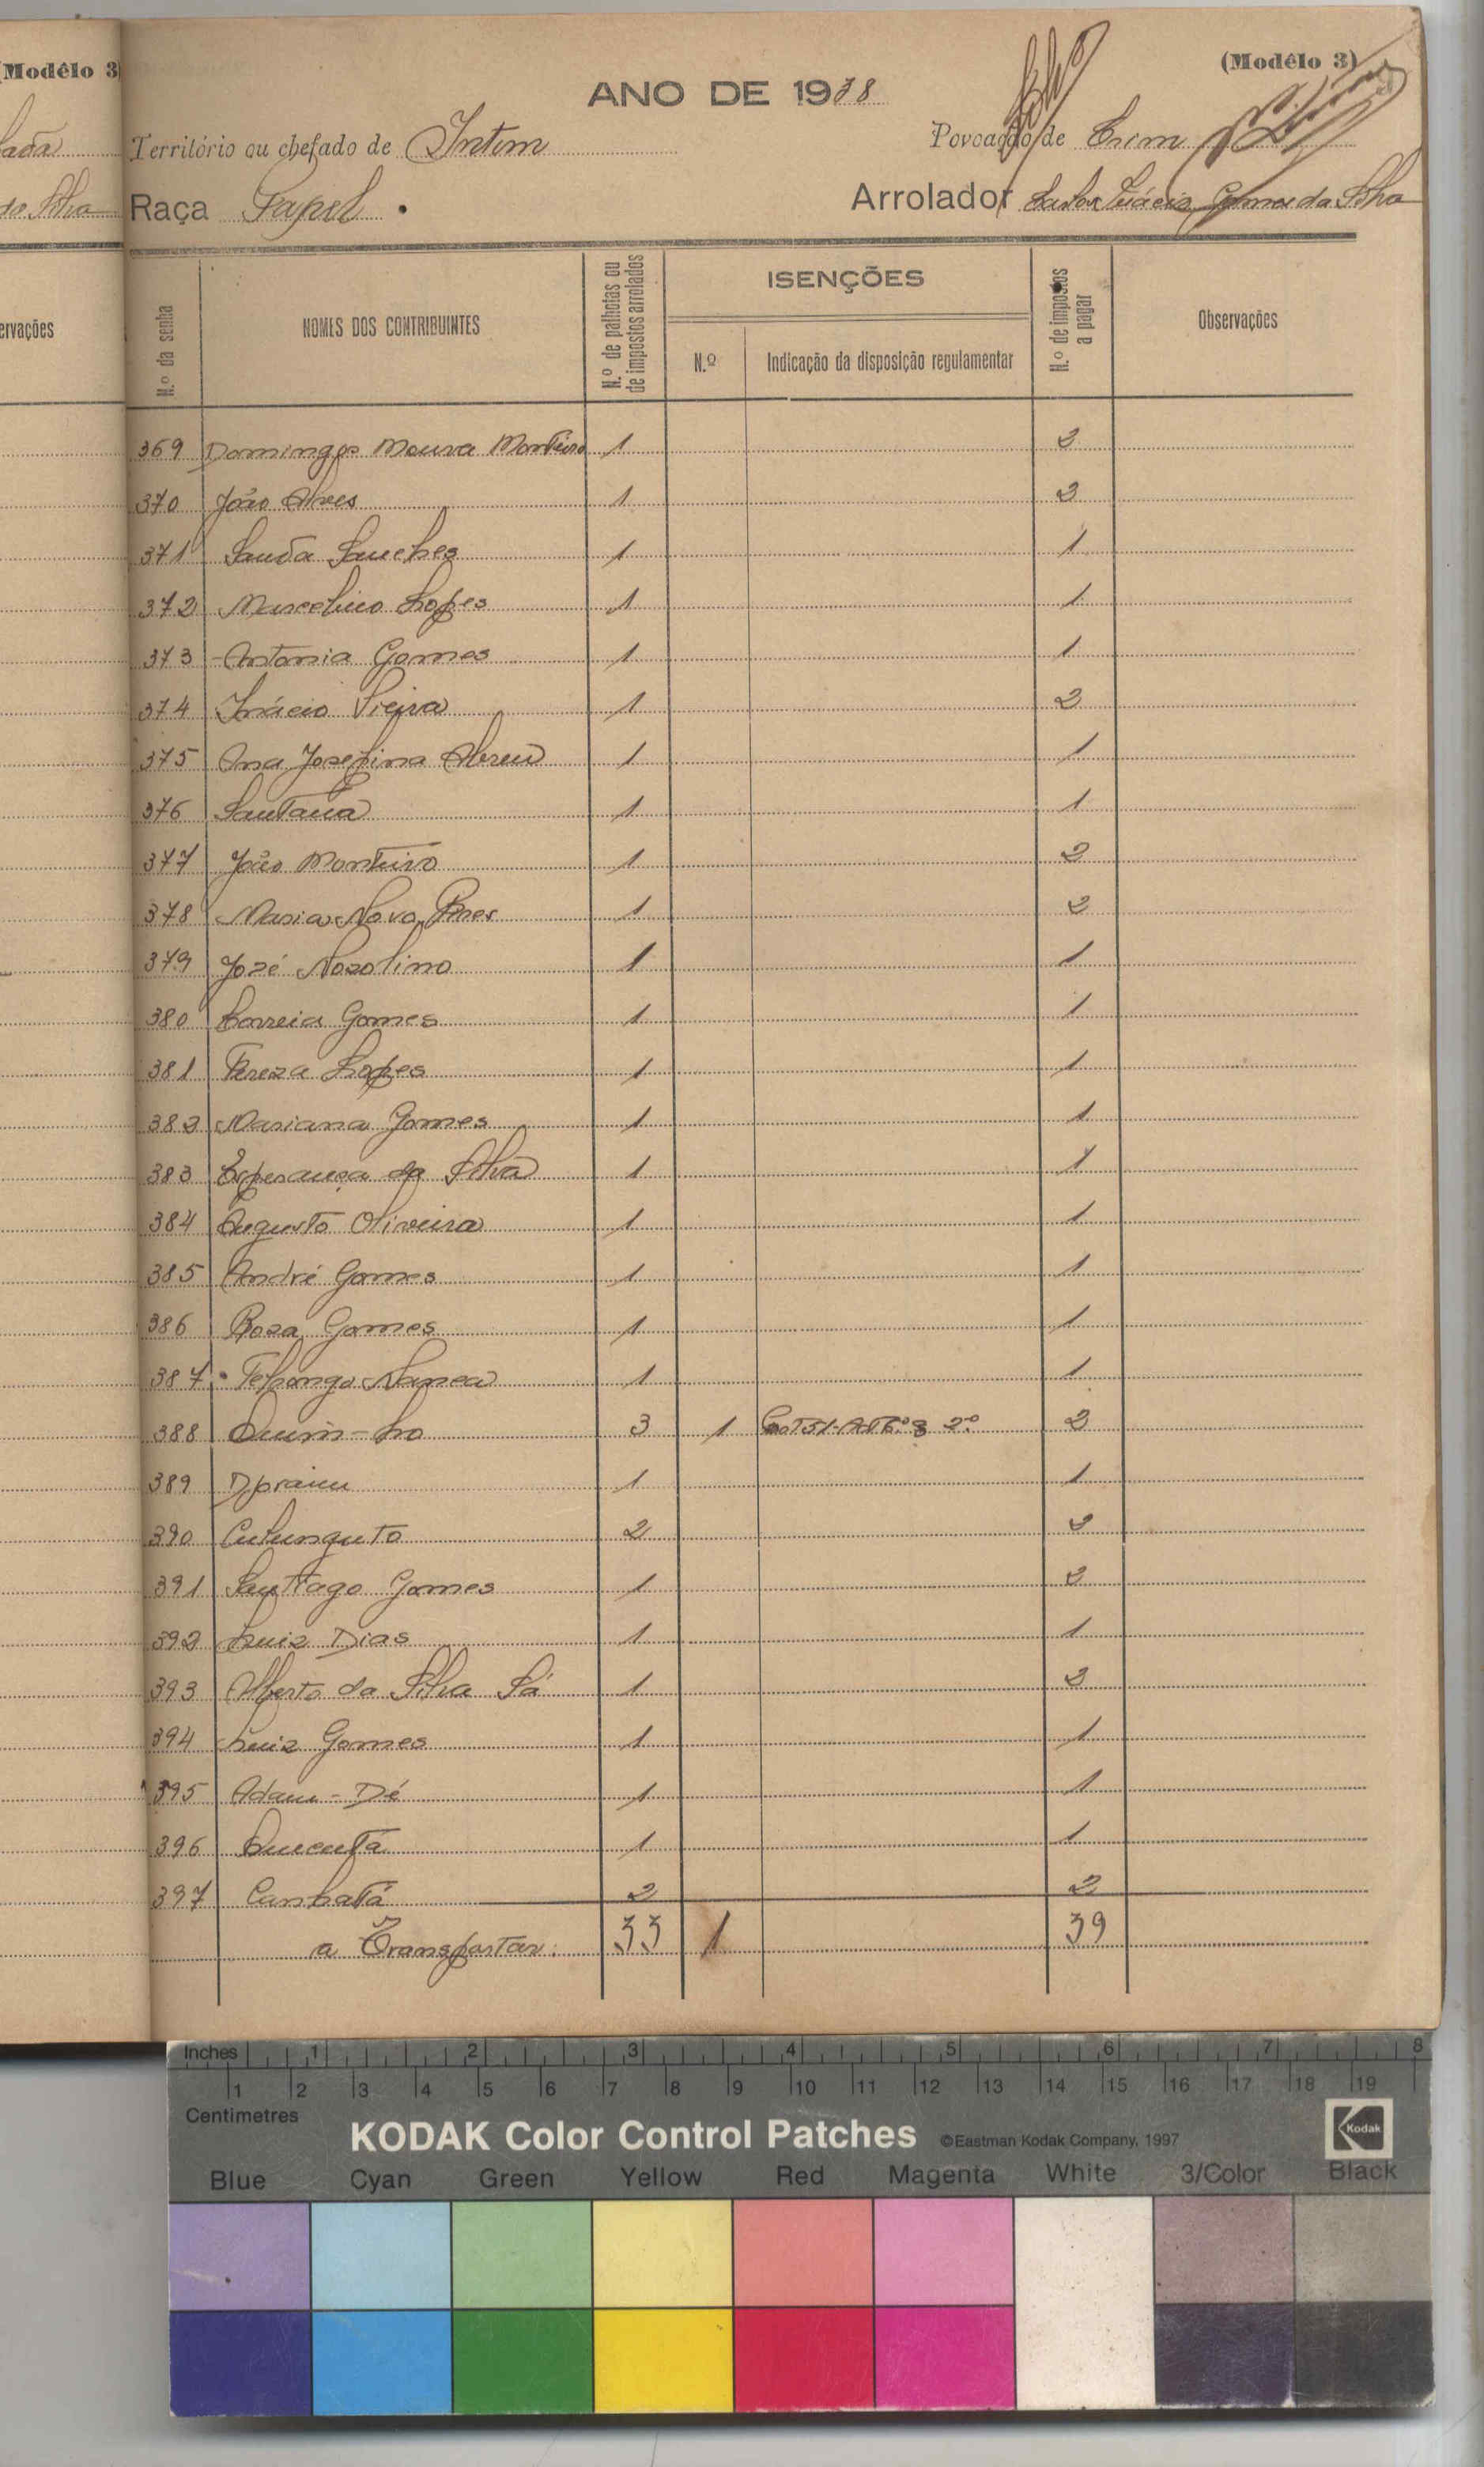 (Modêlo 3
ervações
(Modêlo 3)
ANO DE 1938
Território ou chefado de Intim
Povoação de Crim
Raça Papel
Arrolador Carlos Inácio Gomes da Silva
N.º da senha
NOMES DOS CONTRIBUINTES
N.º de palhotas ou de impostos arrolados
ISENÇÕES
N.º
Indicação da disposição regulamentar
N.º de impostos a pagar
Observações
369 Domingos Moura Monteiro 1 2
370 João Alves 1 2
371 Sanda Sanches 1 1
372 Marcelino Lopes 1 1
373 Antonia Gomes 1 1
374 Inácio Vieira 1 2
375 Ana Josefina Abreu 1 1
376 Santana 1 1
377 João Monteiro 1 2
378 Maria Novo Pires 1 2
379 José Nozolino 1 1
380 Correia Gomes 1 1
381 Tereza Lopes 1 1
382 Mariana Gomes 1 1
383 Esperança da Silva 1 1
384 Augusto Oliveira 1 1
385 André Gomes 1 1
386 Roza Gomes 1 1
387 Nanca 1 1
388 3 1 2
389 1 1
390 Cutunguto 2 2
391 Santiago Gomes 1 2
392 Luiz Dias 1 1
393 Alberto da Silva Sá 1 2
394 Luiz Gomes 1 1
395 Adam - Dé 1 1
396 1 1
397 Canhatá 2 2
a Transportar 33 1 39
Inches 1 2 3 4 5 6 7 8
1 2 3 4 5 6 7 8 9 10 11 12 13 14 15 16 17 18 19
Centimetres
KODAK Color Control Patches ©Eastman Kodak Company, 1997 Kodak
Blue Cyan Green Yellow Red Magenta White 3/Color Black